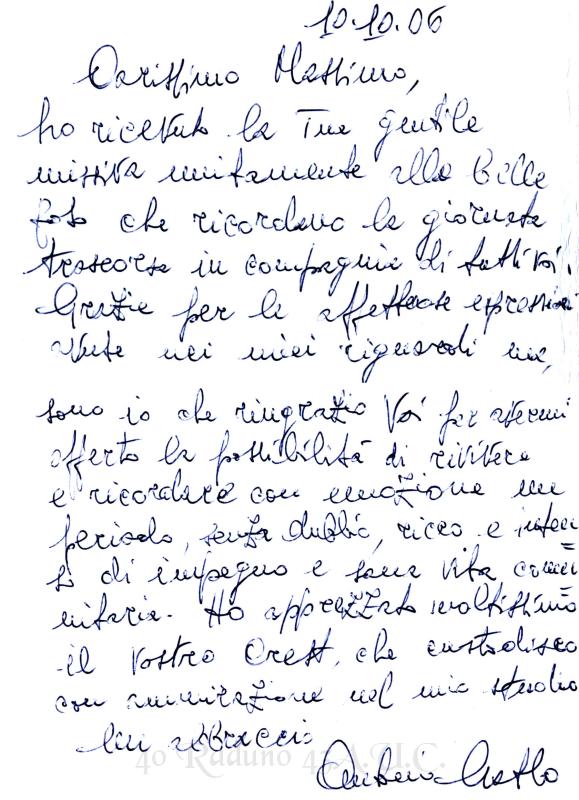 10.10.06
Carissimo Massimo,
ho ricevuto la Tua gentile
missiva unitamente alle belle
foto che ricordano la giornata
trascorsa in compagnia di tutti voi.
Grazie per le affettuose espressioni
avute nei miei riguardi ma,
sono io che ringrazio Voi per avermi
offerto la possibilità di rivivere
e ricordare con emozione un
periodo, senza dubbio, ricco e inten
so di impegno e sana vita comu=
nitaria. Ho apprezzato moltissimo
il Vostro Crest, che custodisco
con ammirazione nel mio studio
Un abbraccio
4o Raduno 43 A.U.C.
Antonio